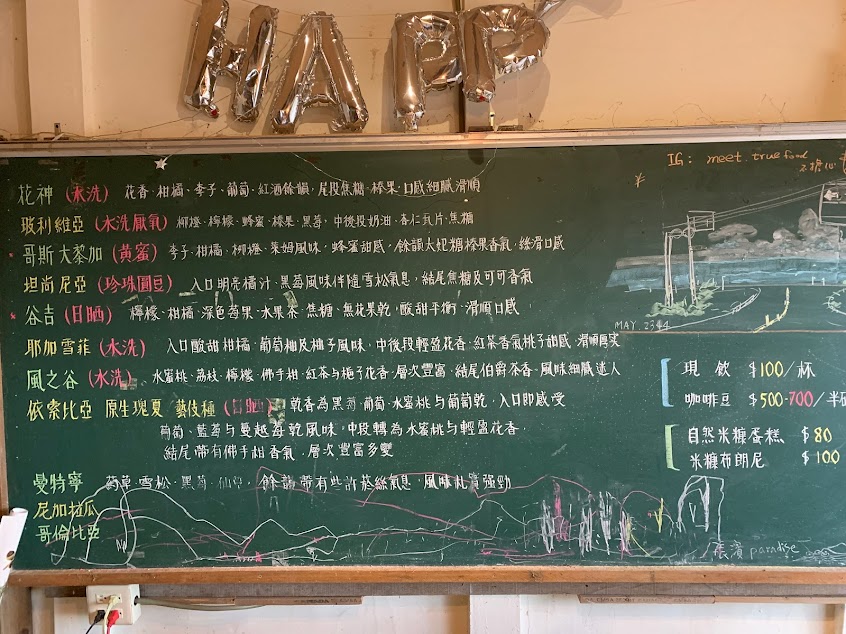 HAPP
IG: meet.true food
花神 (水洗) 花香、柑橘、李子、葡萄、紅酒餘韻，尾段焦糖、榛果，口感細膩滑順
玻利維亞 (水洗厭氧) 柳橙、檸檬、蜂蜜、榛果、黑莓，中後段奶油、杏仁瓦片、焦糖
哥斯大黎加 (黃蜜) 李子、柑橘、柳橙、萊姆風味，蜂蜜甜感，餘韻太妃糖榛果香氣，絲滑口感
坦尚尼亞 (珍珠圓豆) 入口明亮橘汁、黑莓風味伴隨雪松氣息，結尾焦糖及可可香氣
谷吉 (日晒) 檸檬、柑橘、深色莓果、水果茶、焦糖、無花果乾，酸甜平衡，滑順口感
MAY. 2344
耶加雪菲 (水洗) 入口酸甜柑橘、葡萄柚及柚子風味，中後段輕盈花香，紅茶香氣桃子甜感，滑順厚实
風之谷 (水洗) 水蜜桃、荔枝、檸檬、佛手柑、紅茶与梔子花香，層次豐富，結尾伯爵茶香，風味細膩迷人
依索比亞 原生瑰夏 藝伎種 (日晒) 乾香為黑莓、葡萄、水蜜桃与葡萄乾，入口即感受
葡萄、藍莓与曼越莓乾風味，中段轉為水蜜桃与輕盈花香，
結尾帶有佛手柑香氣，層次豐富多變
曼特寧 藥草、雪松、黑莓、餘韻帶有些許菸絲氣息，風味札實強勁
尼加拉瓜
哥倫比亞
現飲 $100/杯
咖啡豆 $500-700/半
自然米糠蛋糕 $80
米糠布朗尼 $100
paradise